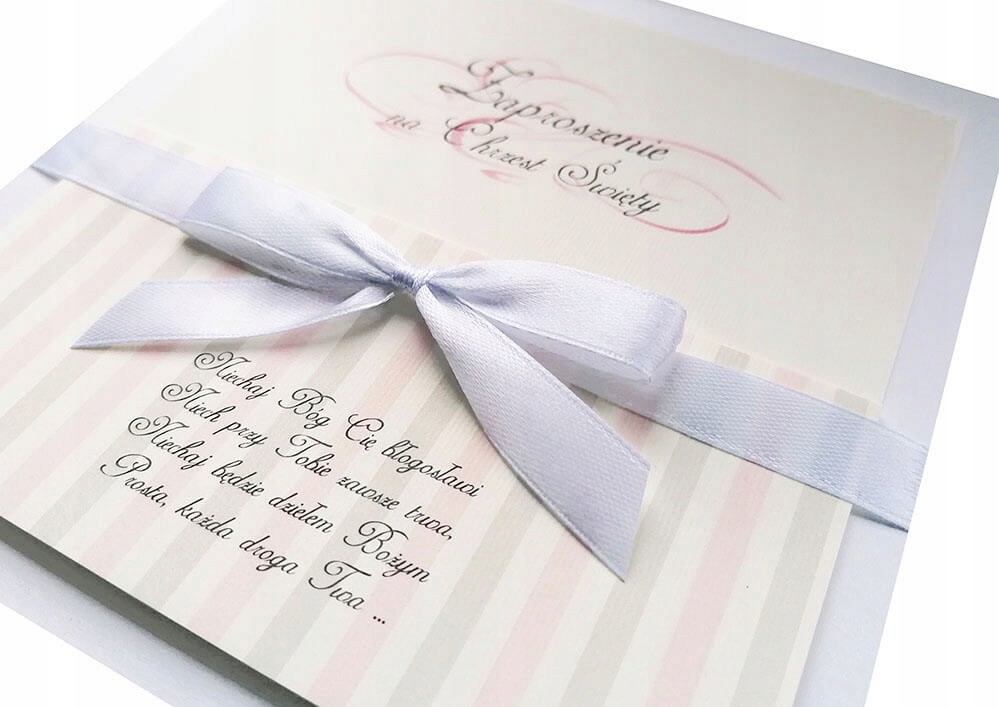 Zaproszenie
na Chrzest Święty
Niechaj Bóg Cię błogosławi
Niech przy Tobie zawsze trwa,
Niechaj będzie dziełem Bożym
Prosta, każda droga Twa ...